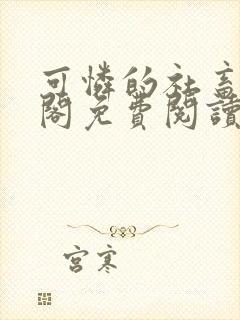 可憐的社畜
閣免費閱讀
宮寒